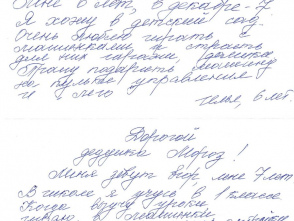 Мне 6 лет, в декабре - 7
Я хожу в детский сад.
Очень люблю играть с
машинками, и строить
для них гаражи,
Прошу подарить машину
на пульте управления
и лего
6 лет.
Дорогой
дедушка Мороз!
Меня зовут Егор, мне 7 лет
В школе я учусь в 1 классе
Когда выучу уроки,
играю в машинки